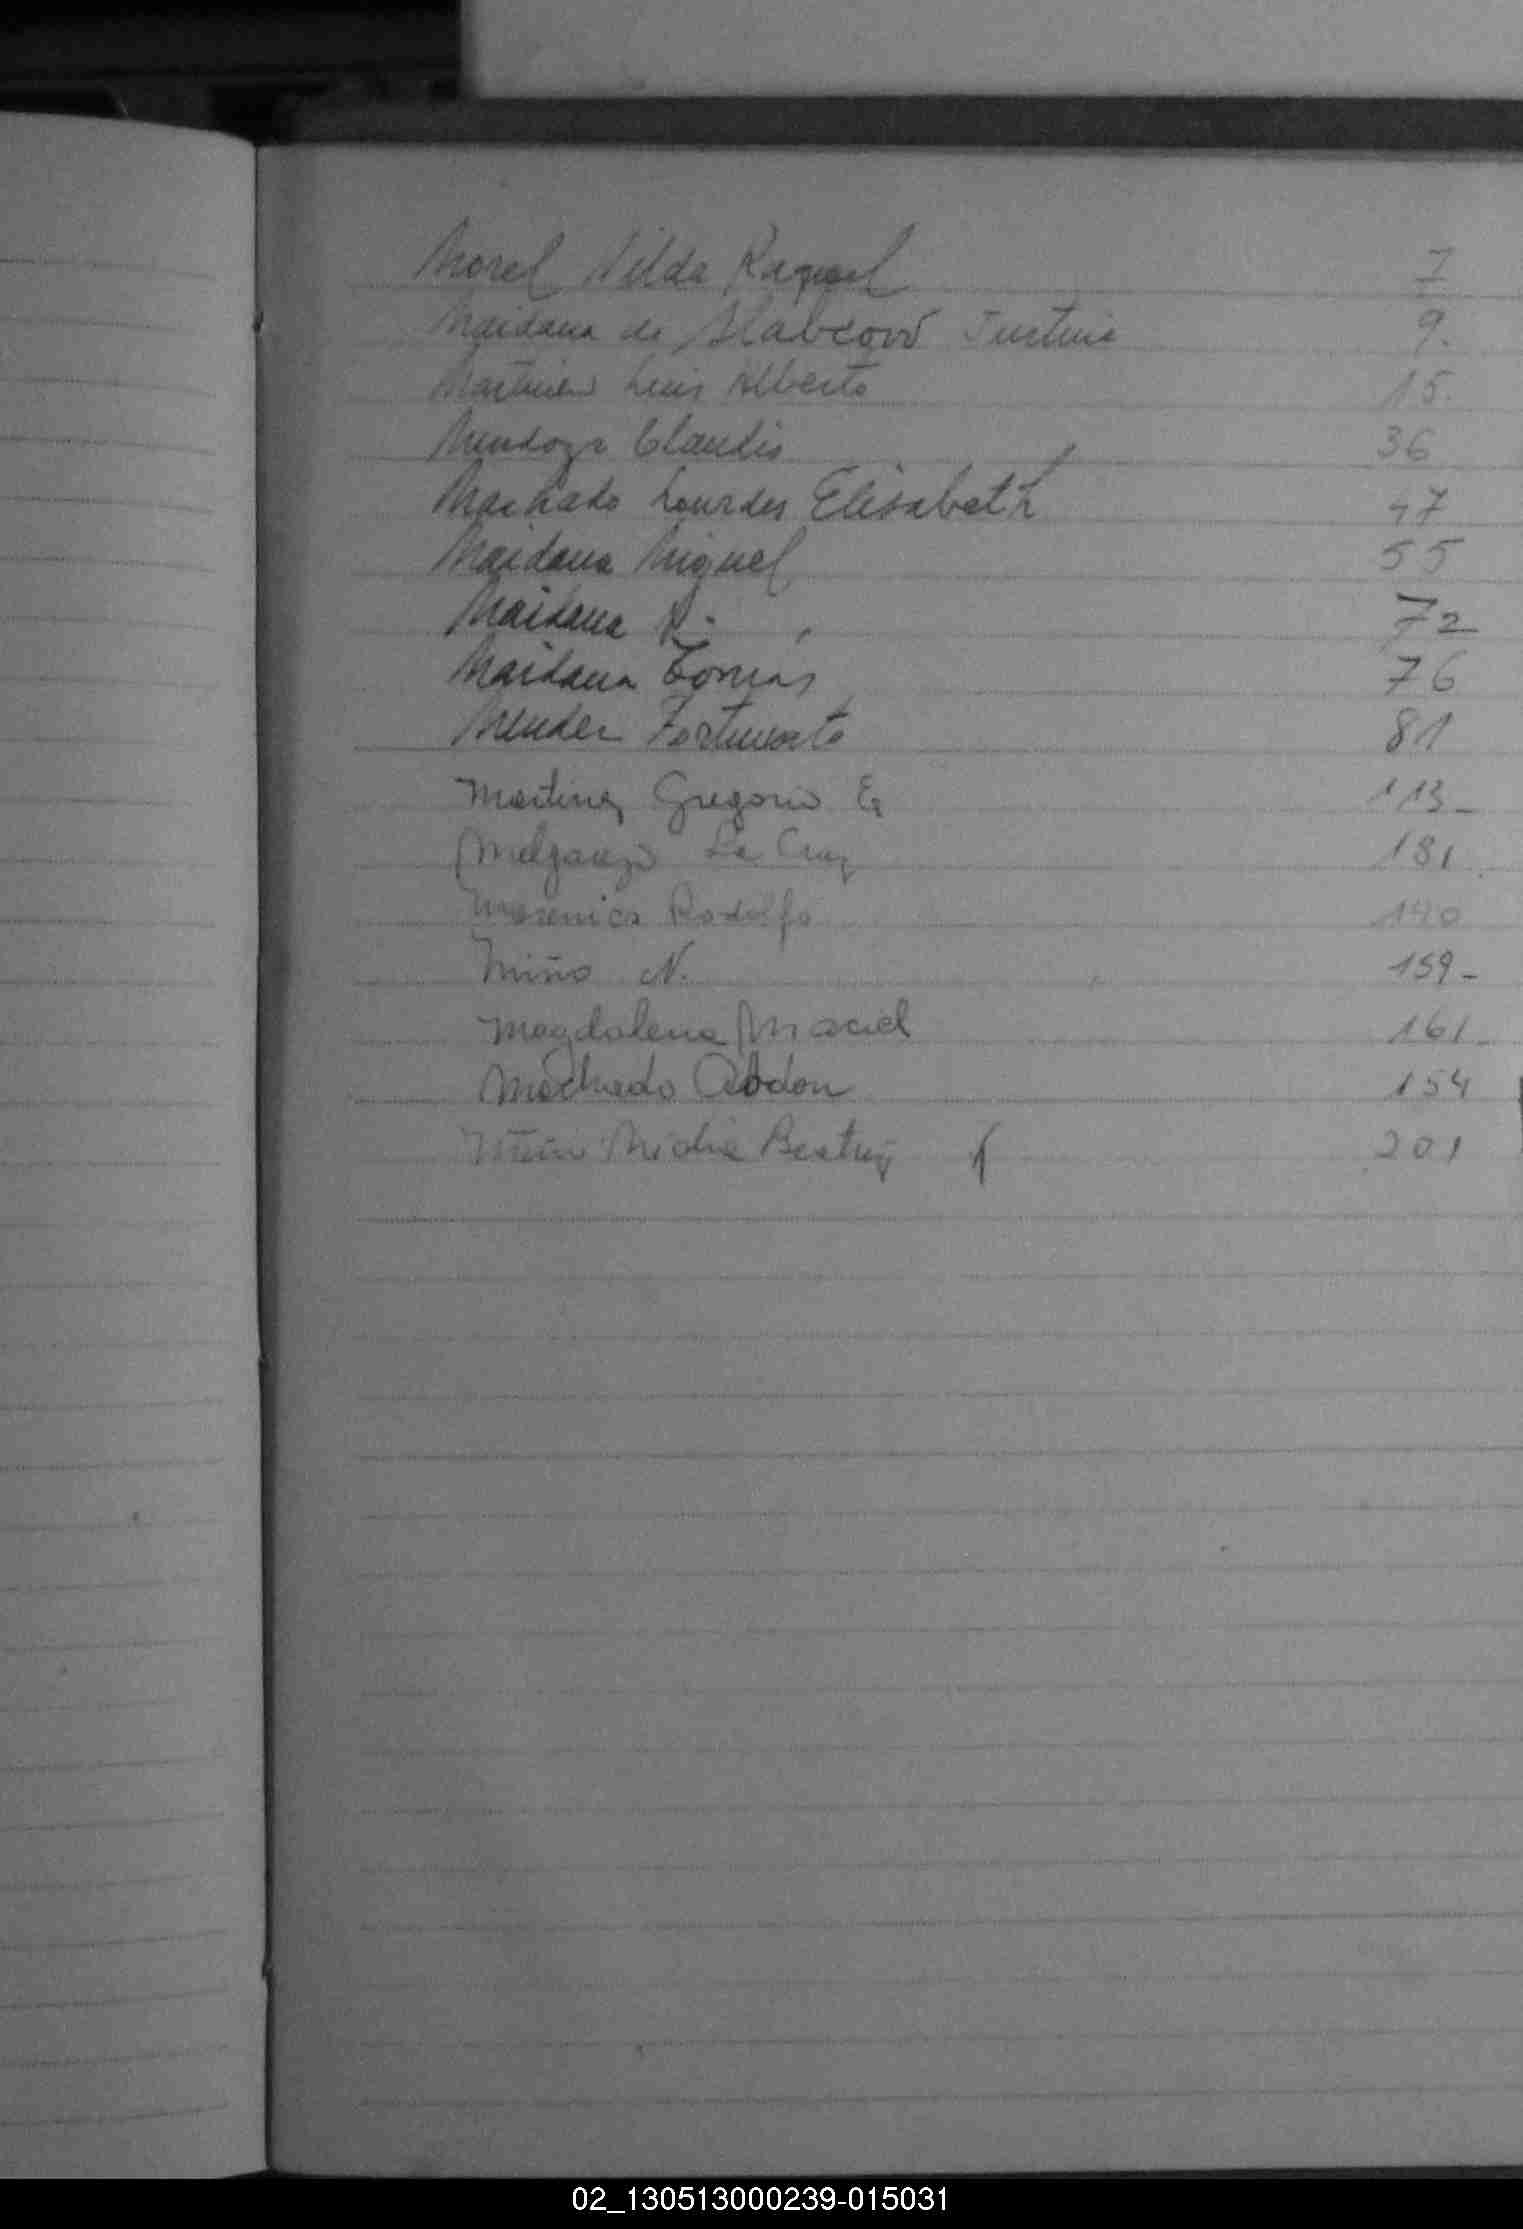 Morel Nilda Raquel 7
Maidana de 9.
Martinez Luis Alberto 15.
Mendoza Claudio 36
Machado Lourdes Elisabeth 47
Maidana Miguel 55
Maidana N. 72
Maidana Tomás 76
Mendez Fortunato 81
Martinez Gregorio E. 113
Melgarejo La Cruz 181
Rodolfo 140
Miño N. 159
Magdalena Maciel 161
Machado Abdon 154
Beatriz 201
02_130513000239-015031